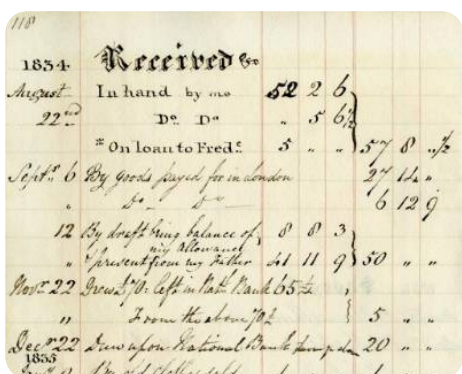 118
1834 Received &c
August In hand by me 52 2 6
22nd Do. Do " 5 6½
" On loan to Fredc. 5 " " 57 8 " ½
Septr. 6 By goods payed for in London 27 14 "
" Do - Do 6 12 9
12 By draft being balance of my Allowance 8 8 3
" present from my Father 41 11 9 50 " "
Novr 22 Drew £70: left in Natl. Bank 65£
" From the above 70£ 5 " "
Decr. 22 Drew upon National Bank 20 " "
1835